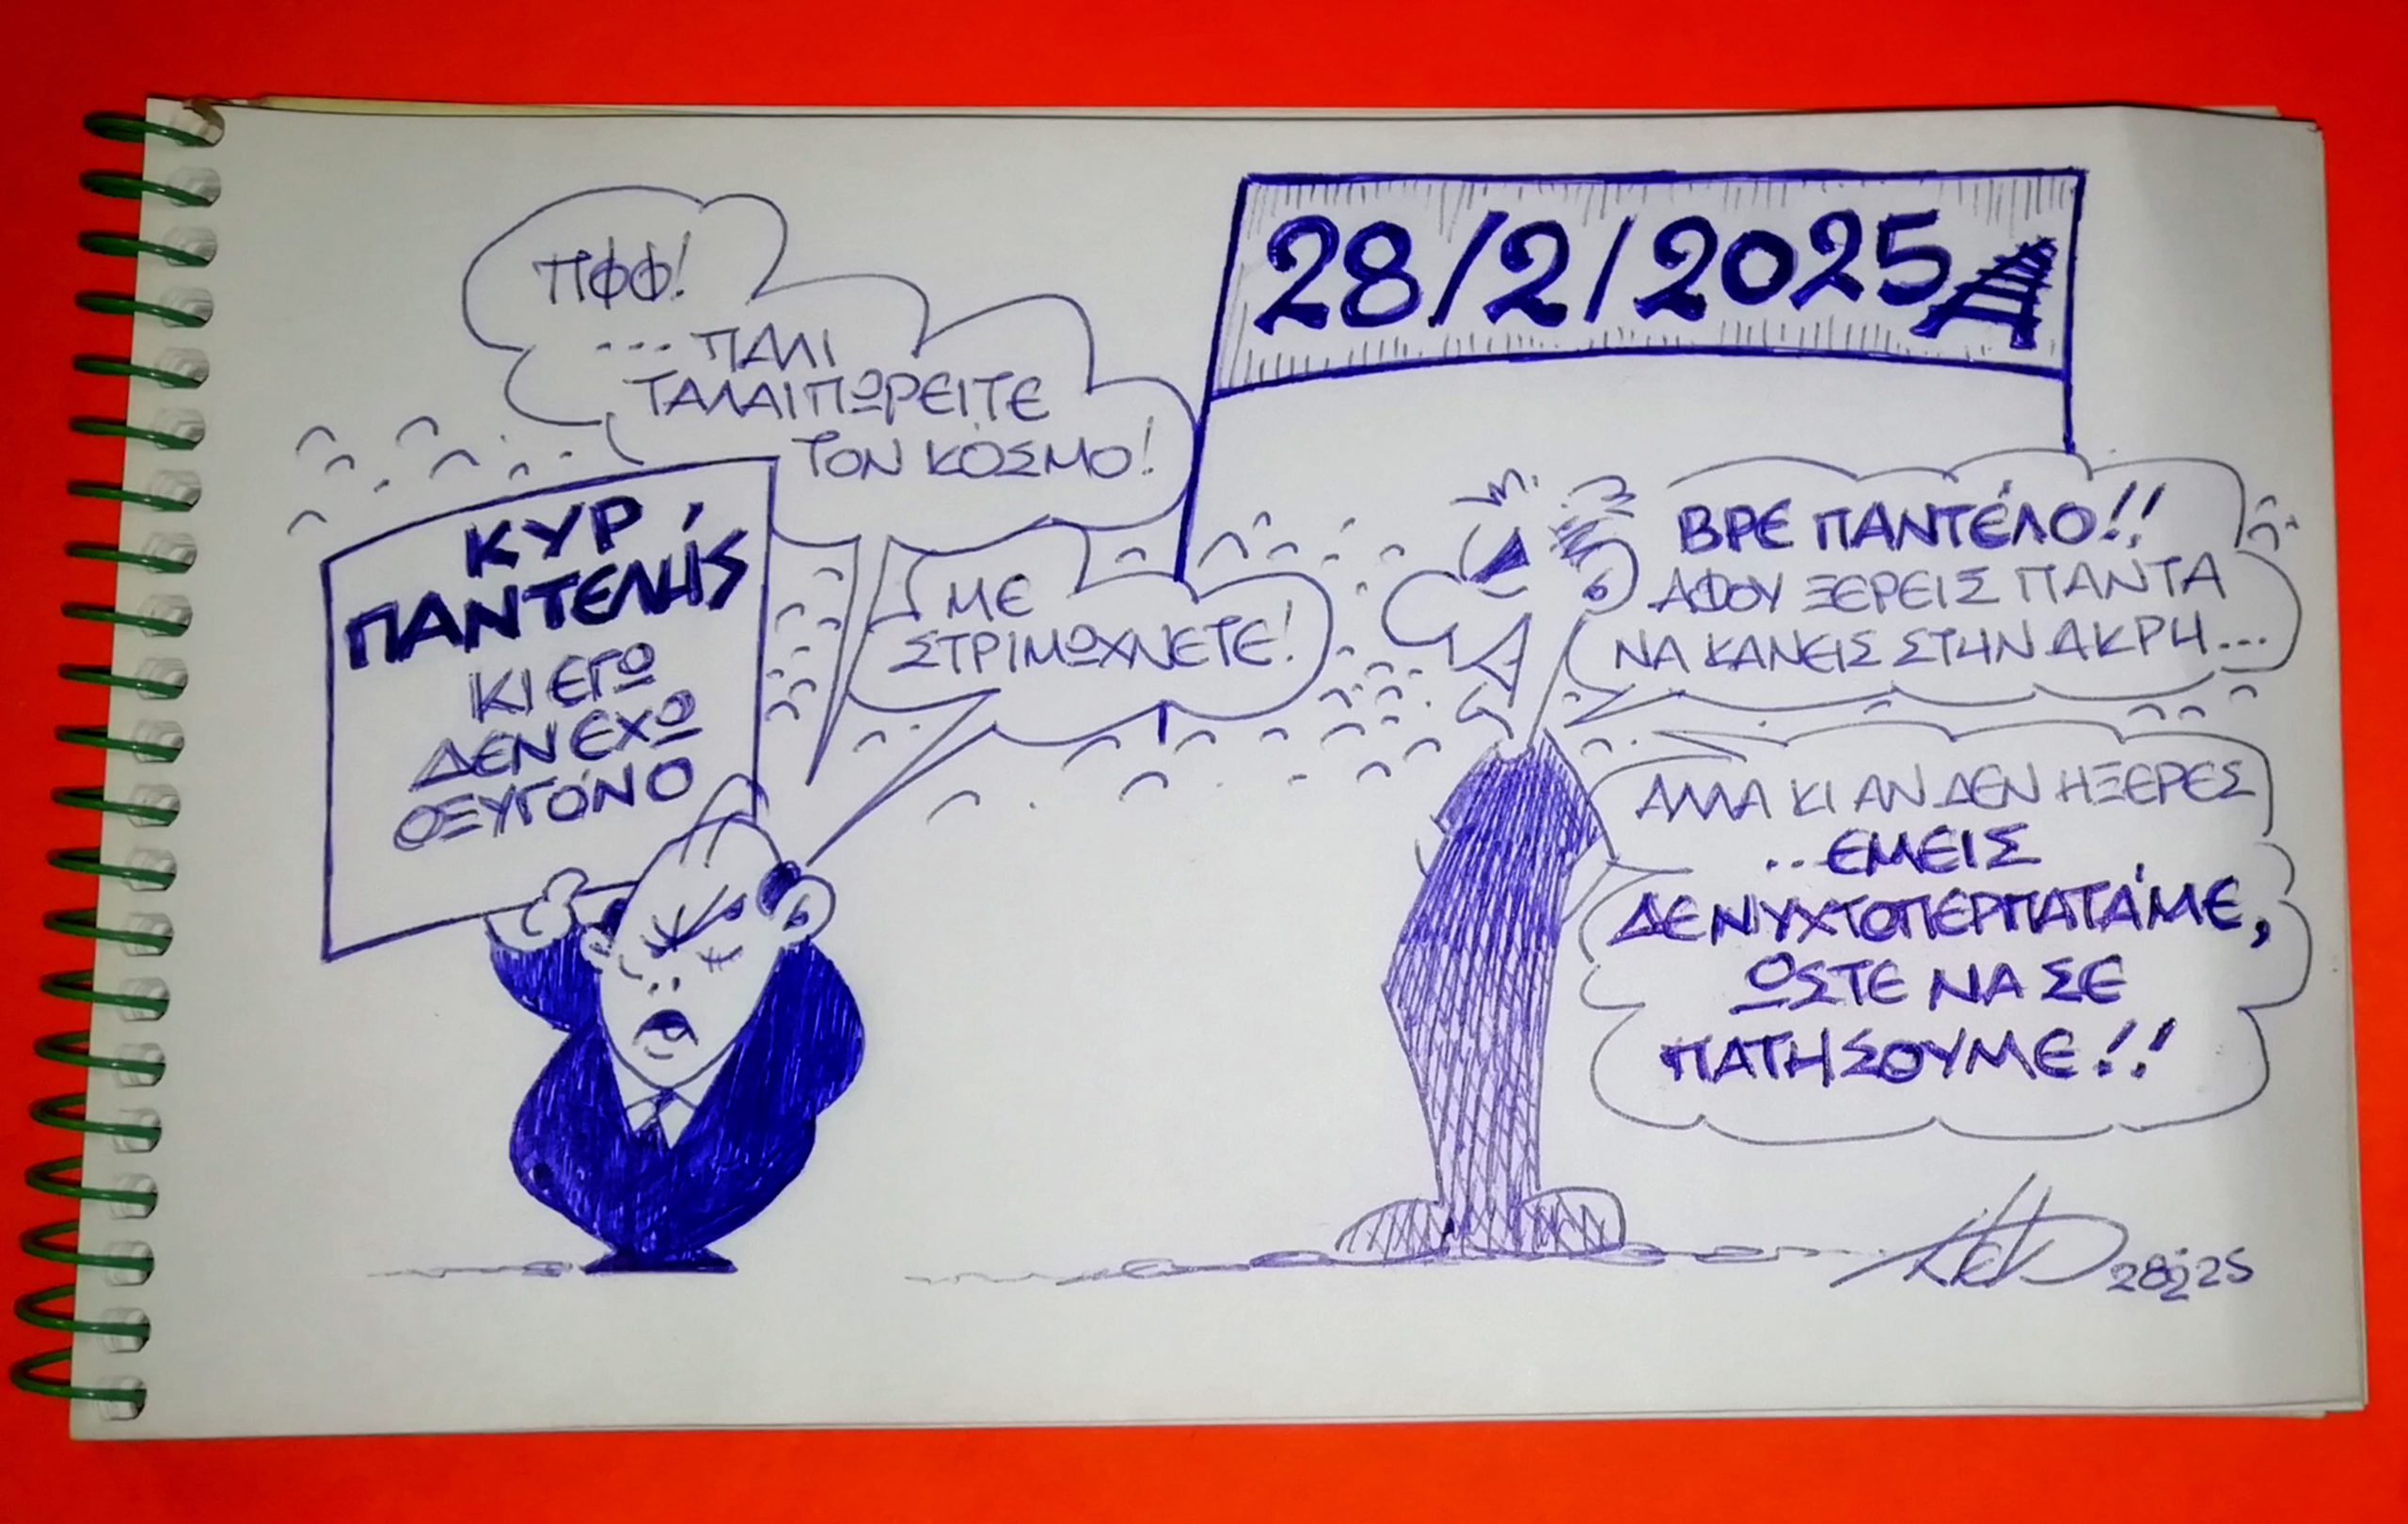 28/2/2025
ΠΦΦ!
... ΠΑΛΙ
ΤΑΛΑΙΠΩΡΕΙΤΕ
ΤΟΝ ΚΟΣΜΟ!
ΜΕ
ΣΤΡΙΜΩΧΝΕΤΕ!
ΚΥΡ
ΠΑΝΤΕΛΉΣ
ΚΙ ΕΓΩ
ΔΕΝ ΕΧΩ
ΟΞΥΓΌΝΟ
ΒΡΕ ΠΑΝΤΈΛΟ!!
ΑΦΟΥ ΞΕΡΕΙΣ ΠΑΝΤΑ
ΝΑ ΚΑΝΕΙΣ ΣΤΗΝ ΑΚΡΗ...
ΑΛΛΑ ΚΙ ΑΝ ΔΕΝ ΗΞΕΡΕΣ
..ΕΜΕΙΣ
ΔΕ ΝΥΧΤΟΠΕΡΠΑΤΆΜΕ,
ΩΣΤΕ ΝΑ ΣΕ
ΠΑΤΗΣΟΥΜΕ!!
28225